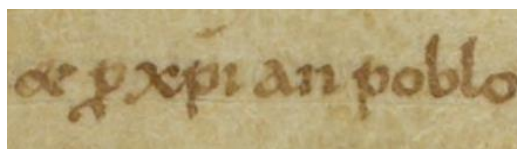 & ꝓ xp̄i an poblo